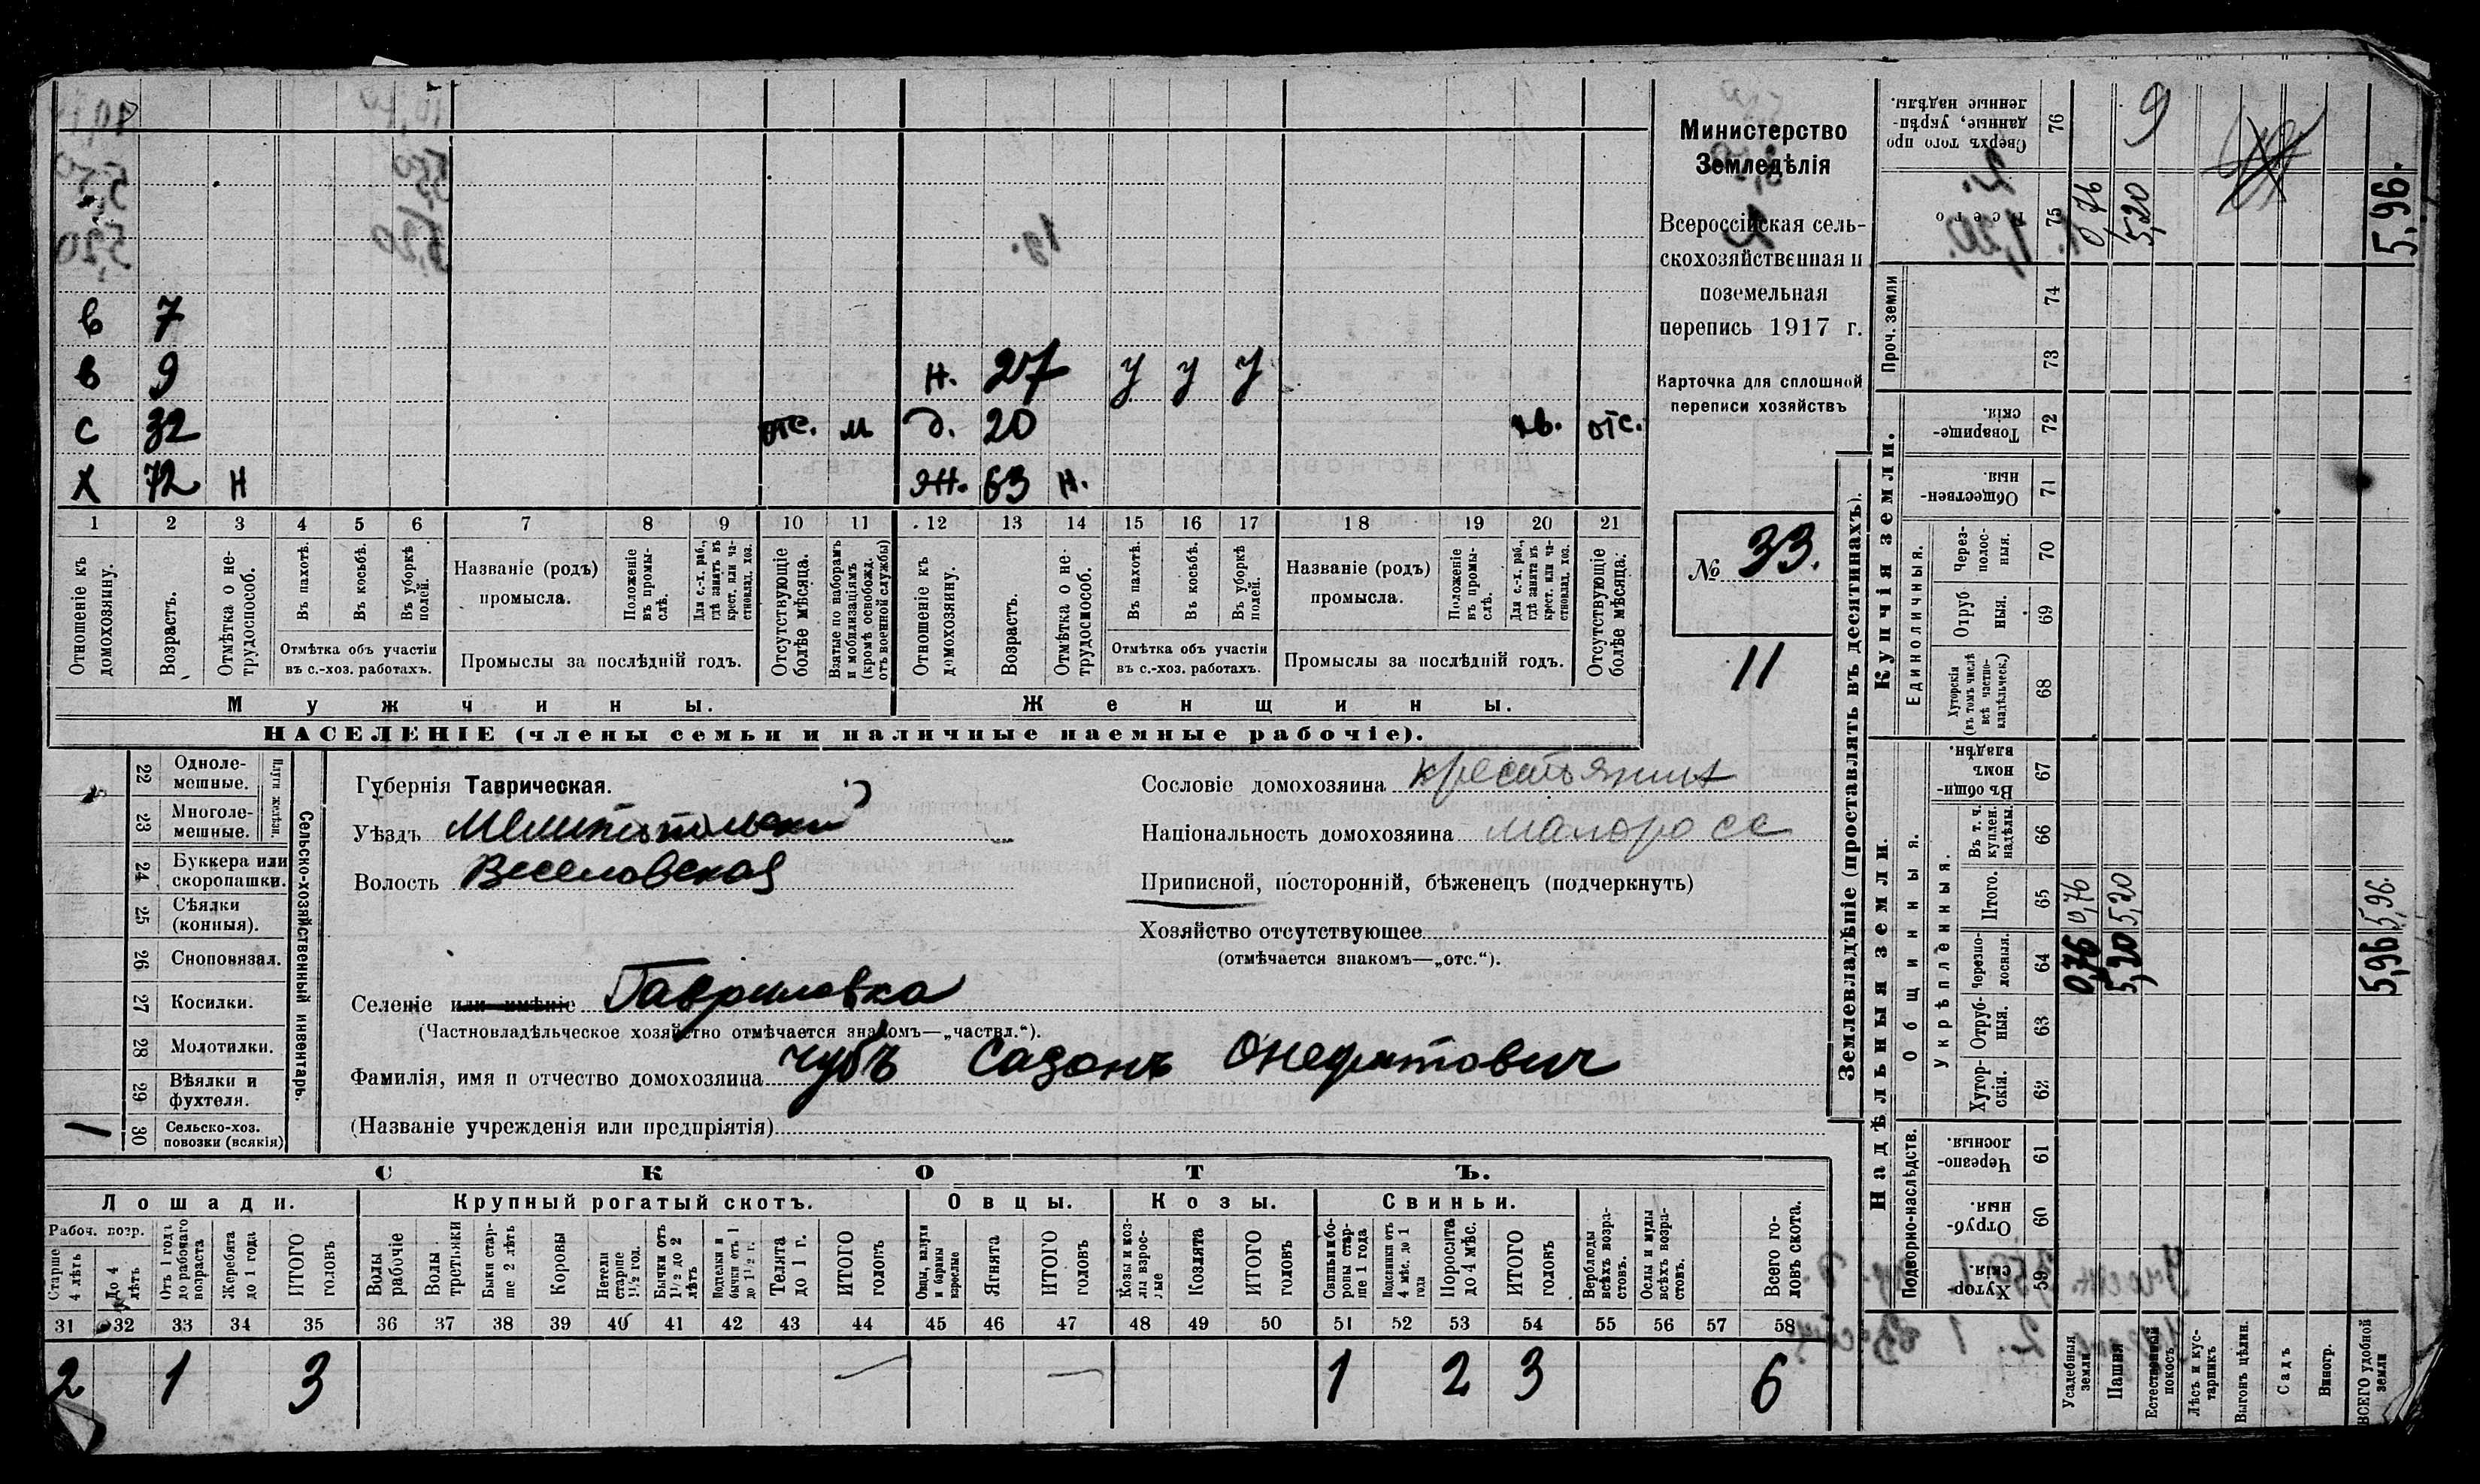 в 7
в 9 н. 27 у у у
с 32 отс. м д. 20 отс.
х 72 н ж. 63 н.
1 2 3 4 5 6 7 8 9 10 11 12 13 14 15 16 17 18 19 20 21
Отношеніе къ домохозяину.
Возрастъ.
Отмѣтка о не-трудоспособ.
Въ пахотѣ.
Въ косьбѣ.
Въ уборкѣ полей.
Отмѣтка объ участіи
въ с.-хоз. работахъ.
Названіе (родъ)
промысла.
Положеніе въ промы-слѣ.
Для с.-х. раб., гдѣ занятъ въ крест. или ча-стновлад. хоз.
Промыслы за послѣдній годъ.
Отсутствующіе болѣе мѣсяца.
Взятые по наборамъ и мобилизаціямъ (кромѣ освобожд. отъ военной службы)
Отношеніе къ домохозяину.
Возрастъ.
Отмѣтка о не-трудоспособ.
Въ пахотѣ.
Въ косьбѣ.
Въ уборкѣ полей.
Отмѣтка объ участіи
въ с.-хоз. работахъ.
Названіе (родъ)
промысла.
Положеніе въ промы-слѣ.
Для с.-х. раб., гдѣ занята въ крест. или ча-стновлад. хоз.
Промыслы за послѣдній годъ.
Отсутствующіе болѣе мѣсяца.
Мужчины. Женщины.
НАСЕЛЕНІЕ (члены семьи и наличные наемные рабочіе).
Министерство
Земледѣлія
Всероссійская сель-
скохозяйственная и
поземельная
перепись 1917 г.
Карточка для сплошной
переписи хозяйствъ
№ 33.
11
Сельско-хозяйственный инвентарь.
Плуги желѣзн.
22 Одноле-мешные.
23 Многоле-мешные.
24 Буккера или скоропашки.
25 Сѣялки (конныя).
26 Сноповязал.
27 Косилки.
28 Молотилки.
29 Вѣялки и фухтеля.
30 Сельско-хоз. повозки (всякія) 1
Губернія Таврическая.
Уѣздъ Мелитопольскій
Волость Веселовская
Селеніе или имѣніе Гавриловка
(Частновладѣльческое хозяйство отмѣчается знакомъ—„частвл.“).
Фамилія, имя и отчество домохозяина Чубъ Сазонъ Онефатович
(Названіе учрежденія или предпріятія)
Сословіе домохозяина крестьянин
Національность домохозяина малоросс
Приписной, посторонній, бѣженецъ (подчеркнуть)
Хозяйство отсутствующее
(отмѣчается знакомъ—„отс.“).
СКОТЪ.
Лошади. Крупный рогатый скотъ. Овцы. Козы. Свиньи.
Рабоч. возр.
Старше 4 лѣтъ
До 4 лѣтъ
Отъ 1 года до рабочаго возраста
Жеребята до 1 года
ИТОГО головъ
Волы рабочіе
Волы третьяки
Быки стар-ше 2 лѣтъ
Коровы
Нетели старше 1½ год.
Бычки отъ 1½ до 2 лѣтъ
Подтелки и бычки отъ 1 до 1½ г.
Телята до 1 г.
ИТОГО головъ
Овцы, валухи и бараны взрослые
Ягнята
ИТОГО головъ
Козы и коз-лы взрос-лые
Козлята
ИТОГО головъ
Свиньи и бо-ровы стар-ше 1 года
Подсвинки отъ 4 мѣс. до 1 года
Поросята до 4 мѣс.
ИТОГО головъ
Верблюды всѣхъ возра-стовъ.
Ослы и мулы всѣхъ возра-стовъ.
Всего го-ловъ скота.
31 32 33 34 35 36 37 38 39 40 41 42 43 44 45 46 47 48 49 50 51 52 53 54 55 56 57 58
2 1 3 — — 1 2 3 6
Землевладѣніе (проставлять въ десятинахъ).
Надѣльныя земли. Купчія земли. Проч. земли
Подворно-наслѣдств. Общинныя. Единоличныя.
Укрѣпленныя.
Хутор-скія. 59
Отруб-ныя 60
Черезпо-лосныя. 61
Хутор-скія. 62
Отруб-ныя. 63
Черезпо-лосныя. 64 0,76 5,20 5,96
Итого. 65 0,76 5,20 5,96.
Въ т. ч. куплен. надѣлы. 66
Въ общи-номъ владѣн. 67
Хуторскія (въ томъ числѣ всѣ частно-владѣльческ.) 68
Отруб ныя. 69
Через-полос-ныя. 70
Обществен-ныя 71
Товарище-скія. 72
73
74
Всего 75 0,76 5,20 5,96.
Сверхъ того про-данные, укрѣп-ленные надѣлы. 76 9
Усадебныя земли
Пашня
Естественный покосъ
Лѣсъ и кус-тарникъ
Выгонъ цѣлин.
Садъ
Виногр.
ВСЕГО удобной земли